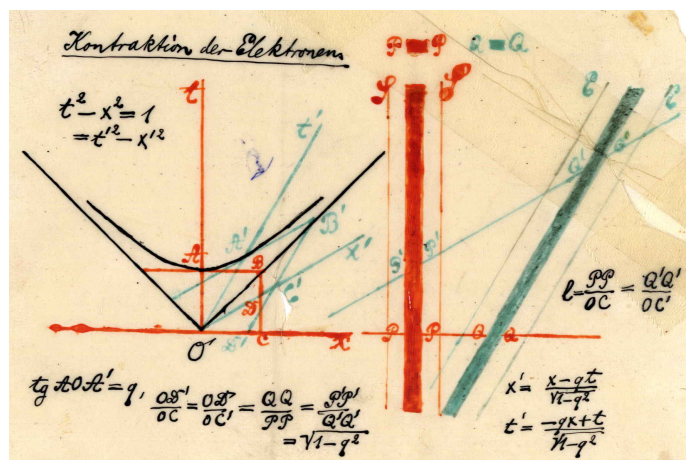 Kontraktion der Elektronen
P P Q = Q
t² - x² = 1
= t'² - x'²
t t' 𝒮 𝒮 C C
A A' B B' x' Q' Q'
D C' P' P'
O D' C x P P Q Q
l = PP/OC = Q'Q'/OC'
tg AOA' = q, OD'/OC = OD/OC' = QQ/PP = P'P'/Q'Q'
= √1-q²
x' = x-qt/√1-q²
t' = -qx+t/√1-q²